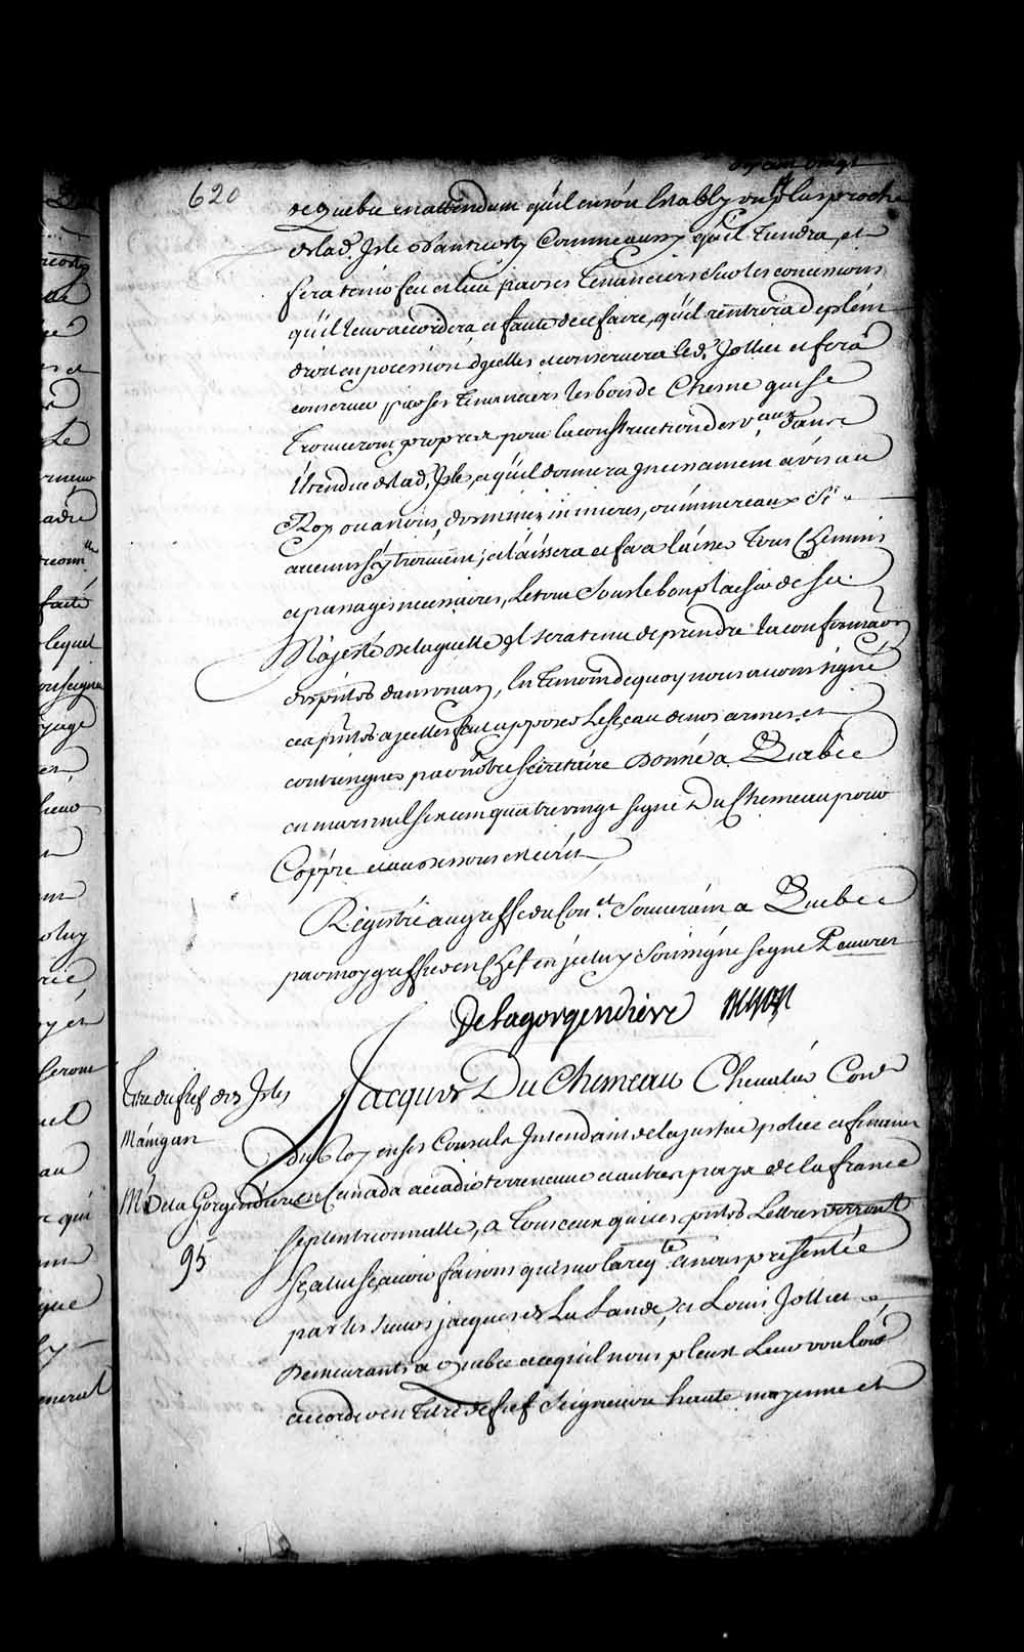 620
de quebec en attendant qu'il en soit estably un plus proche
de lad. Isle d'anticosty Comme aussy qu'il tiendra, et
fera tenir feu et lieu par ses tenanciers sur les concessions
qu'il leur accordera, et faute de ce faire, qu'il rentrera de plein
droit en possession d'ycelles et conservera led. Jolliet et fera
conserver par ses tenanciers les bois de Chesne qui se
trouveront propres pour la construction des v.aux dans
l'étendue de lad. Isle, et qu'il donnera incessamment avis au
Roy ou a nous, des mines, minieres, ou minereaux Si
aucuns s'y trouvent; et laissera et fera laisser tous Chemins
et passages necessaires, Le tout Sous le bon plaisir de Sa
Majesté de laquelle il sera tenu de prendre la confirmaõn
des pñtes dans un an, En temoin de quoy nous avons signé
ces pñtes a ycelles fait apposer Le Sceau de nos armes et
contresigner par nôtre Secretaire Donné a Quebec
en mars mil six cent quatre vingt signé Du Chesneau pour
Coppie
Régistré au greffe du Con.el Souverain a Quebec
par moy greffier en Chef en jceluy Soussigné signé Peuvret
Delagorgendiere
Titre du fief des Isles
Maingan
Mr Dela Gorgendiere
95
Jacques DuChesneau Chevalier Con.er
du Roy en ses Conseils Intendant de la justice police et finances
en Canada accadie terreneuve et autres pays de la france
Septentrionnalle, a Tous ceux qui ces pñtes Lettres verront
Salut sçavoir faisons que sur la req.te a nous présentée
par les sieurs jacques de La Lande, et Louis Jolliet
Demeurants a Quebec a ce qu'il nous pleust Leur vouloir
accorder en Titre de fief Seigneurie haute moyenne et